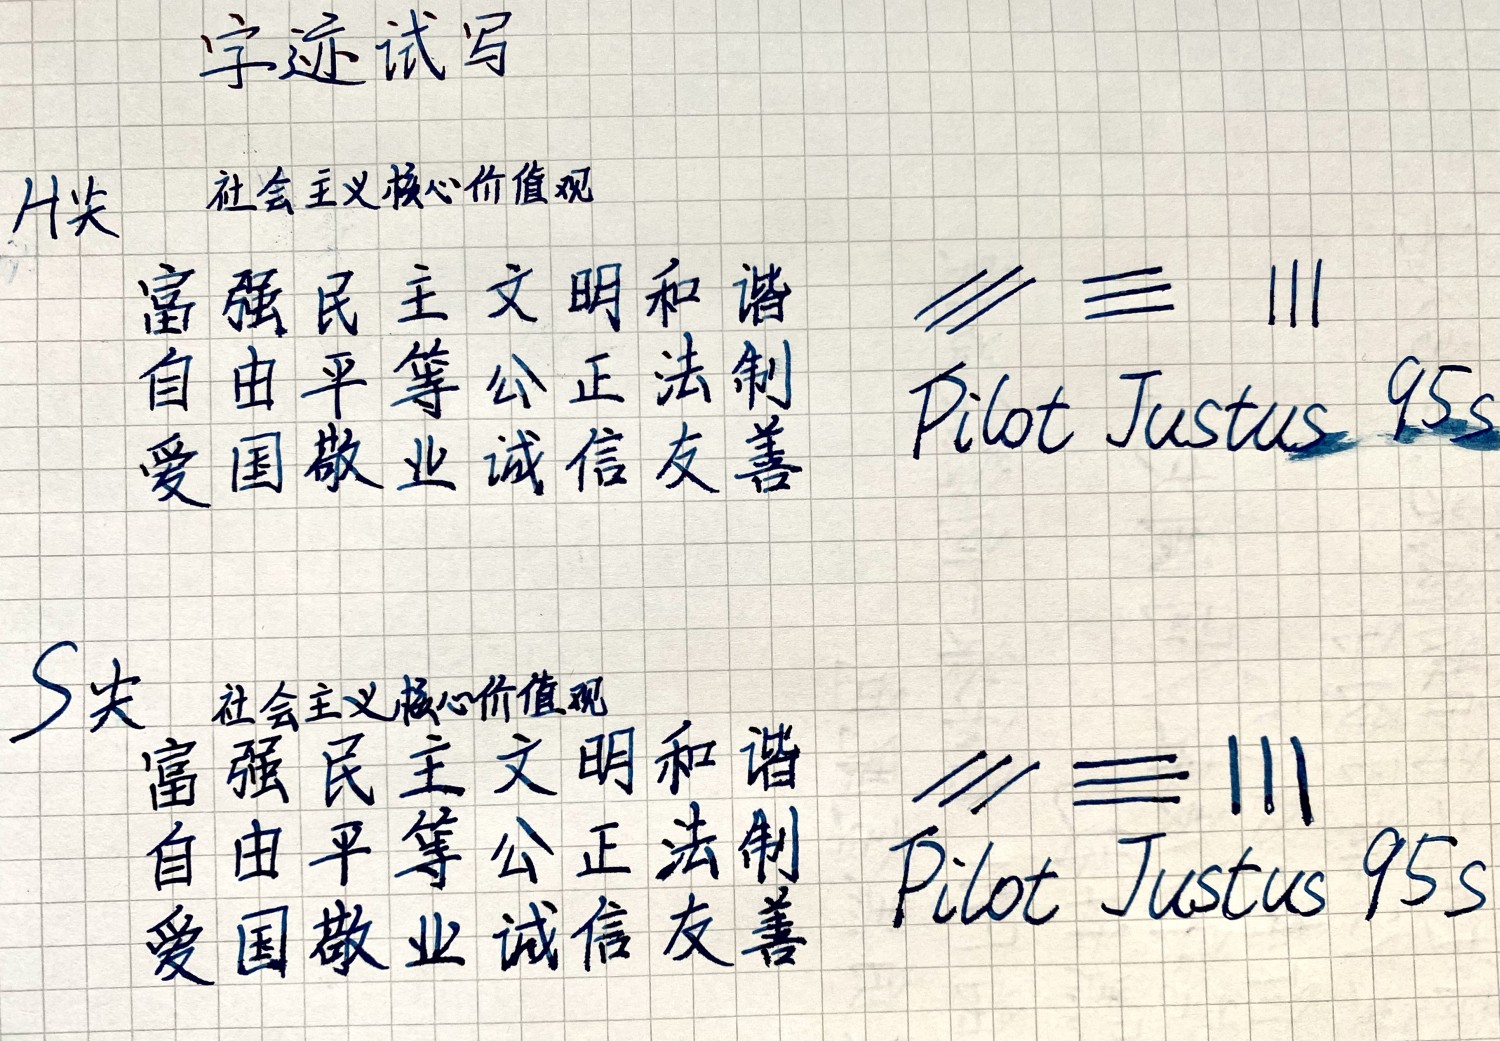 字迹试写
H尖
社会主义核心价值观
富强民主文明和谐
自由平等公正法制
爱国敬业诚信友善
Pilot Justus 95s
S尖
社会主义核心价值观
富强民主文明和谐
自由平等公正法制
爱国敬业诚信友善
Pilot Justus 95s